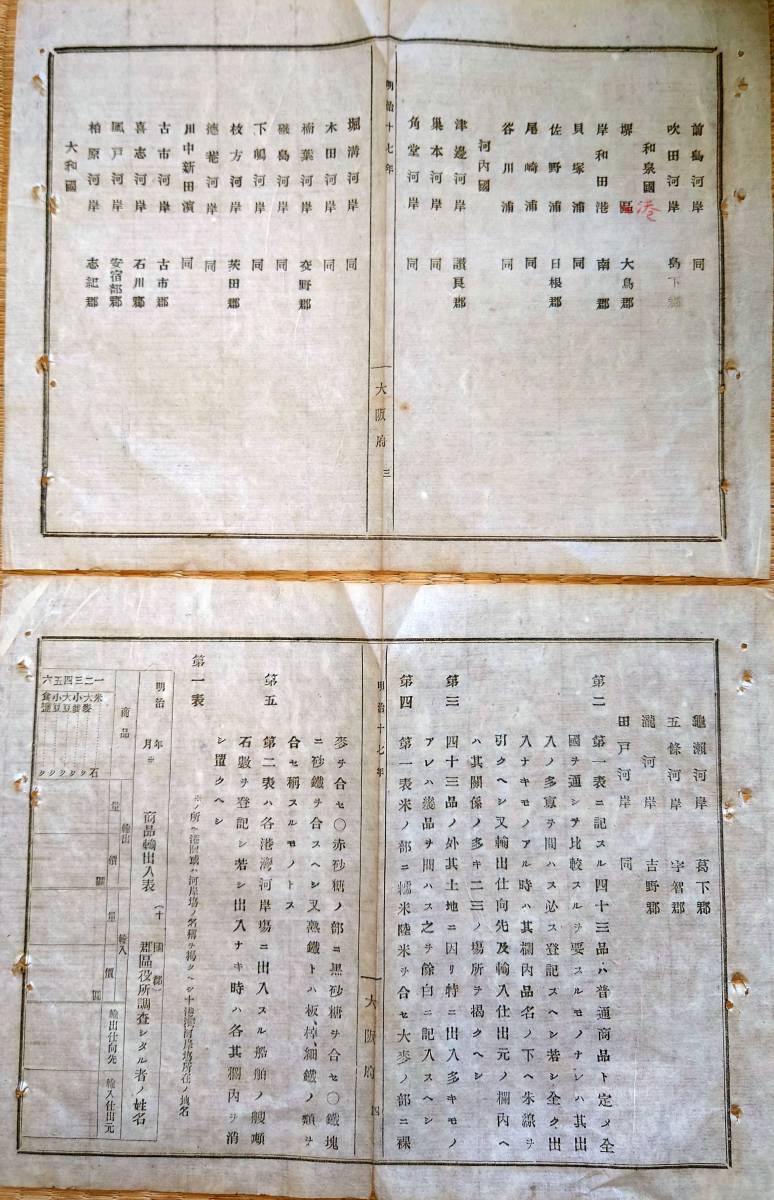 前島河岸 同
吹田河岸 島下郡
和泉國
堺區 大鳥郡
港
岸和田港 南郡
貝塚浦 同
佐野浦 日根郡
尾崎浦 同
谷川浦 同
河內國
津邊河岸 讃良郡
巢本河岸 同
角堂河岸 同
明治十七年
大阪府 三
堀溝河岸 同
木田河岸 同
楠葉河岸 交野郡
磯島河岸 同
下嶋河岸 同
枝方河岸 茨田郡
河岸 同
川中新田濱 同
古市河岸 古市郡
喜志河岸 石川郡
風戸河岸 安宿部郡
柏原河岸 志紀郡
大和國
龜瀬河岸 葛下郡
五條河岸 宇智郡
瀧河岸 吉野郡
田戸河岸 同
第二 第一表ニ記スル四十三品ハ普通商品ト定メ全
國ヲ通シテ比較スルヲ要スルモノナレハ其出
入ノ多寡ヲ問ハス必ス登記スヘシ若シ全ク出
入ナキモノアル時ハ其欄內品名ノ下ヘ朱線ヲ
引クヘシ又輸出仕向先及輸入仕出元ノ欄內ヘ
ハ其關係ノ多キ二三ノ塲所ヲ揭クヘシ
第三 四十三品ノ外其土地ニ因リ特ニ出入多キモノ
アレハ幾品ヲ問ハス之ヲ餘白ニ記入スヘシ
第四 第一表米ノ部ニ糯米陸米ヲ合セ大麥ノ部ニ裸
明治十七年
大阪府 四
麥ヲ合セ〇赤砂糖ノ部ニ黑砂糖ヲ合セ〇鐵塊
ニ砂鐵ヲ合スヘシ又熟鐵トハ板棹細鐵ノ類ヲ
合セ稱スルモノトス
第五 第二表ハ各港灣河岸塲ニ出入スル船舶ノ艘噸
石數ヲ登記シ若シ出入ナキ時ハ各其欄內ヲ消
シ置クヘシ
第一表
※ノ所ヘ港灣或ハ河岸塲ノ名稱ヲ揭クヘシ十港灣河岸塲所在ノ地名
明治 年 月※ 商品輸出入表 (十 國 郡) 郡區役所調査シタル者ノ姓名
商品
輸出
量
價
圓
輸入
量
價
圓
輸出仕向先
輸入仕出元
一 米 石
二 大麥 〃
三 小麥 〃
四 大豆 〃
五 小豆 〃
六 食鹽 〃